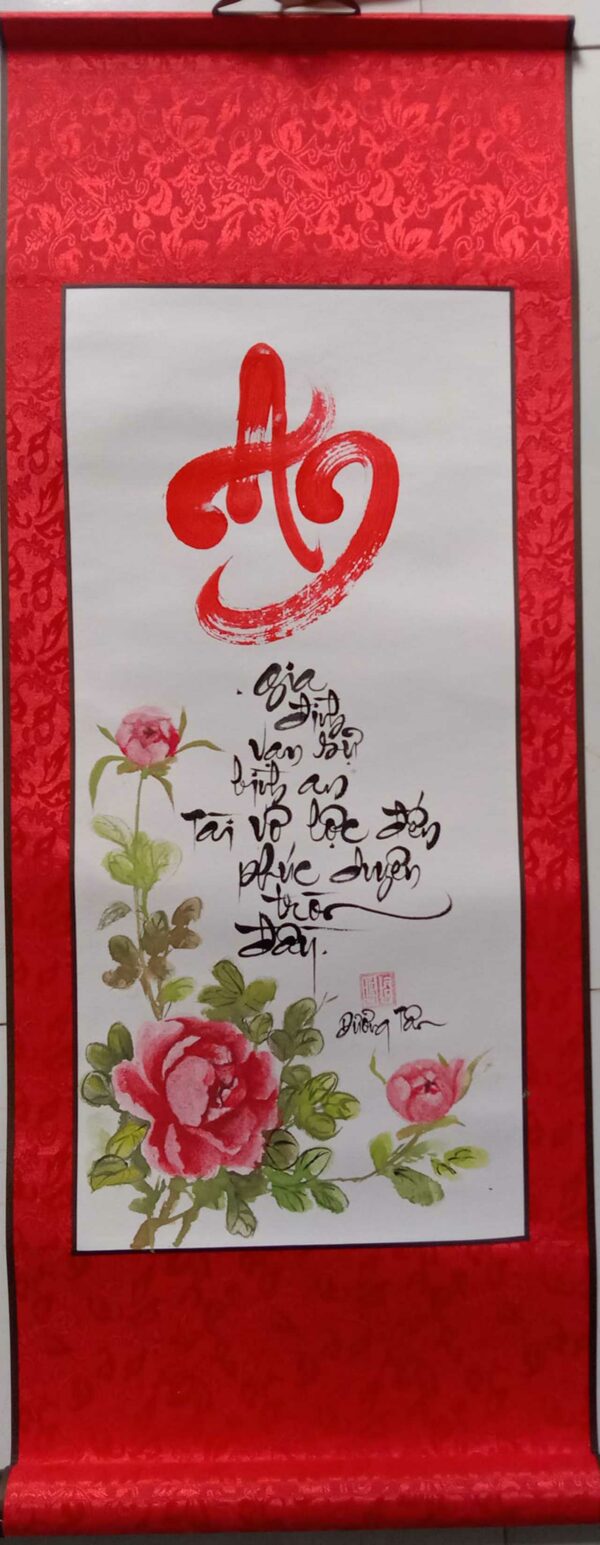 An
Gia
đình
vạn sự
bình an
Tài vô lộc đến
phúc duyên
tròn
đầy.